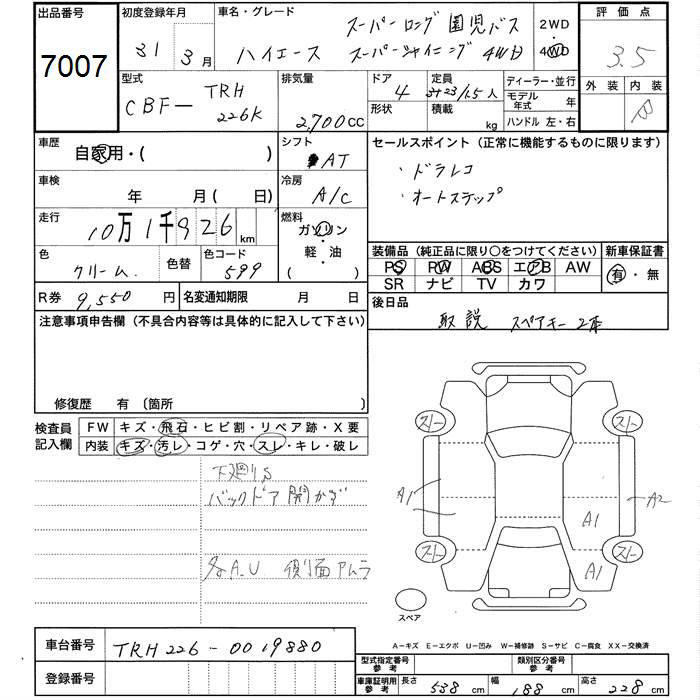 出品番号 初度登録年月 車名・グレード 2WD 評価点
7007 31 3月 ハイエース スーパーロング 園児バス
スーパーシャイニング 4WD 4WD 3.5
型式 排気量 ドア 定員 ディーラー・並行 外装 内装
CBF- TRH 226K 2,700cc 4 3+23/1.5人 モデル年式 年 B
形状 積載 kg ハンドル 左・右
車歴 自家用・( ) シフト AT セールスポイント (正常に機能するものに限ります)
・ドラレコ
車検 年 月( 日) 冷房 A/C ・オートステップ
走行 10万1千926km 燃料 ガソリン
軽・油
( )
色 クリーム 色替 色コード 599
装備品 (純正品に限り〇をつけてください) 新車保証書
PS PW ABS エアB AW 有・無
SR ナビ TV カワ
R券 9,550円 名変通知期限 月 日 後日品
取説 スペアキー2本
注意事項申告欄 (不具合内容等は具体的に記入して下さい)
修復歴 有 (箇所
検査員記入欄 FW キズ・飛石・ヒビ割・リペア跡・X要
内装 キズ・汚レ・コゲ・穴・スレ・キレ・破レ
下廻りS
バックドア開かず
各A.U 側面アムラ
スト スト
A1 A1 A2
スト A1 スト
スペア
A-キズ E-エクボ U-凹み W-補修跡 S-サビ C-腐食 XX-交換済
車台番号 TRH226-0019880
登録番号
型式指定番号 参考 類別区分番号 参考
車庫証明用 参考 長さ 538cm 幅 188cm 高さ 228cm